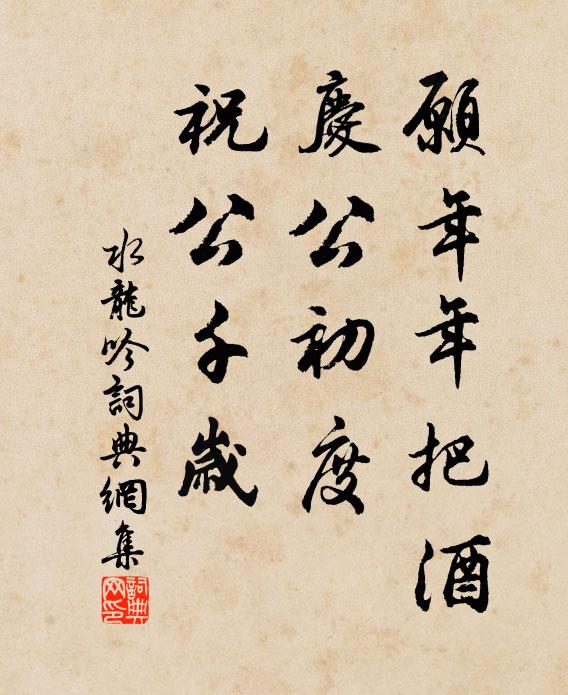 願年年把酒
慶公初度
祝公千歳
水龍吟詞典網集
詞典网印